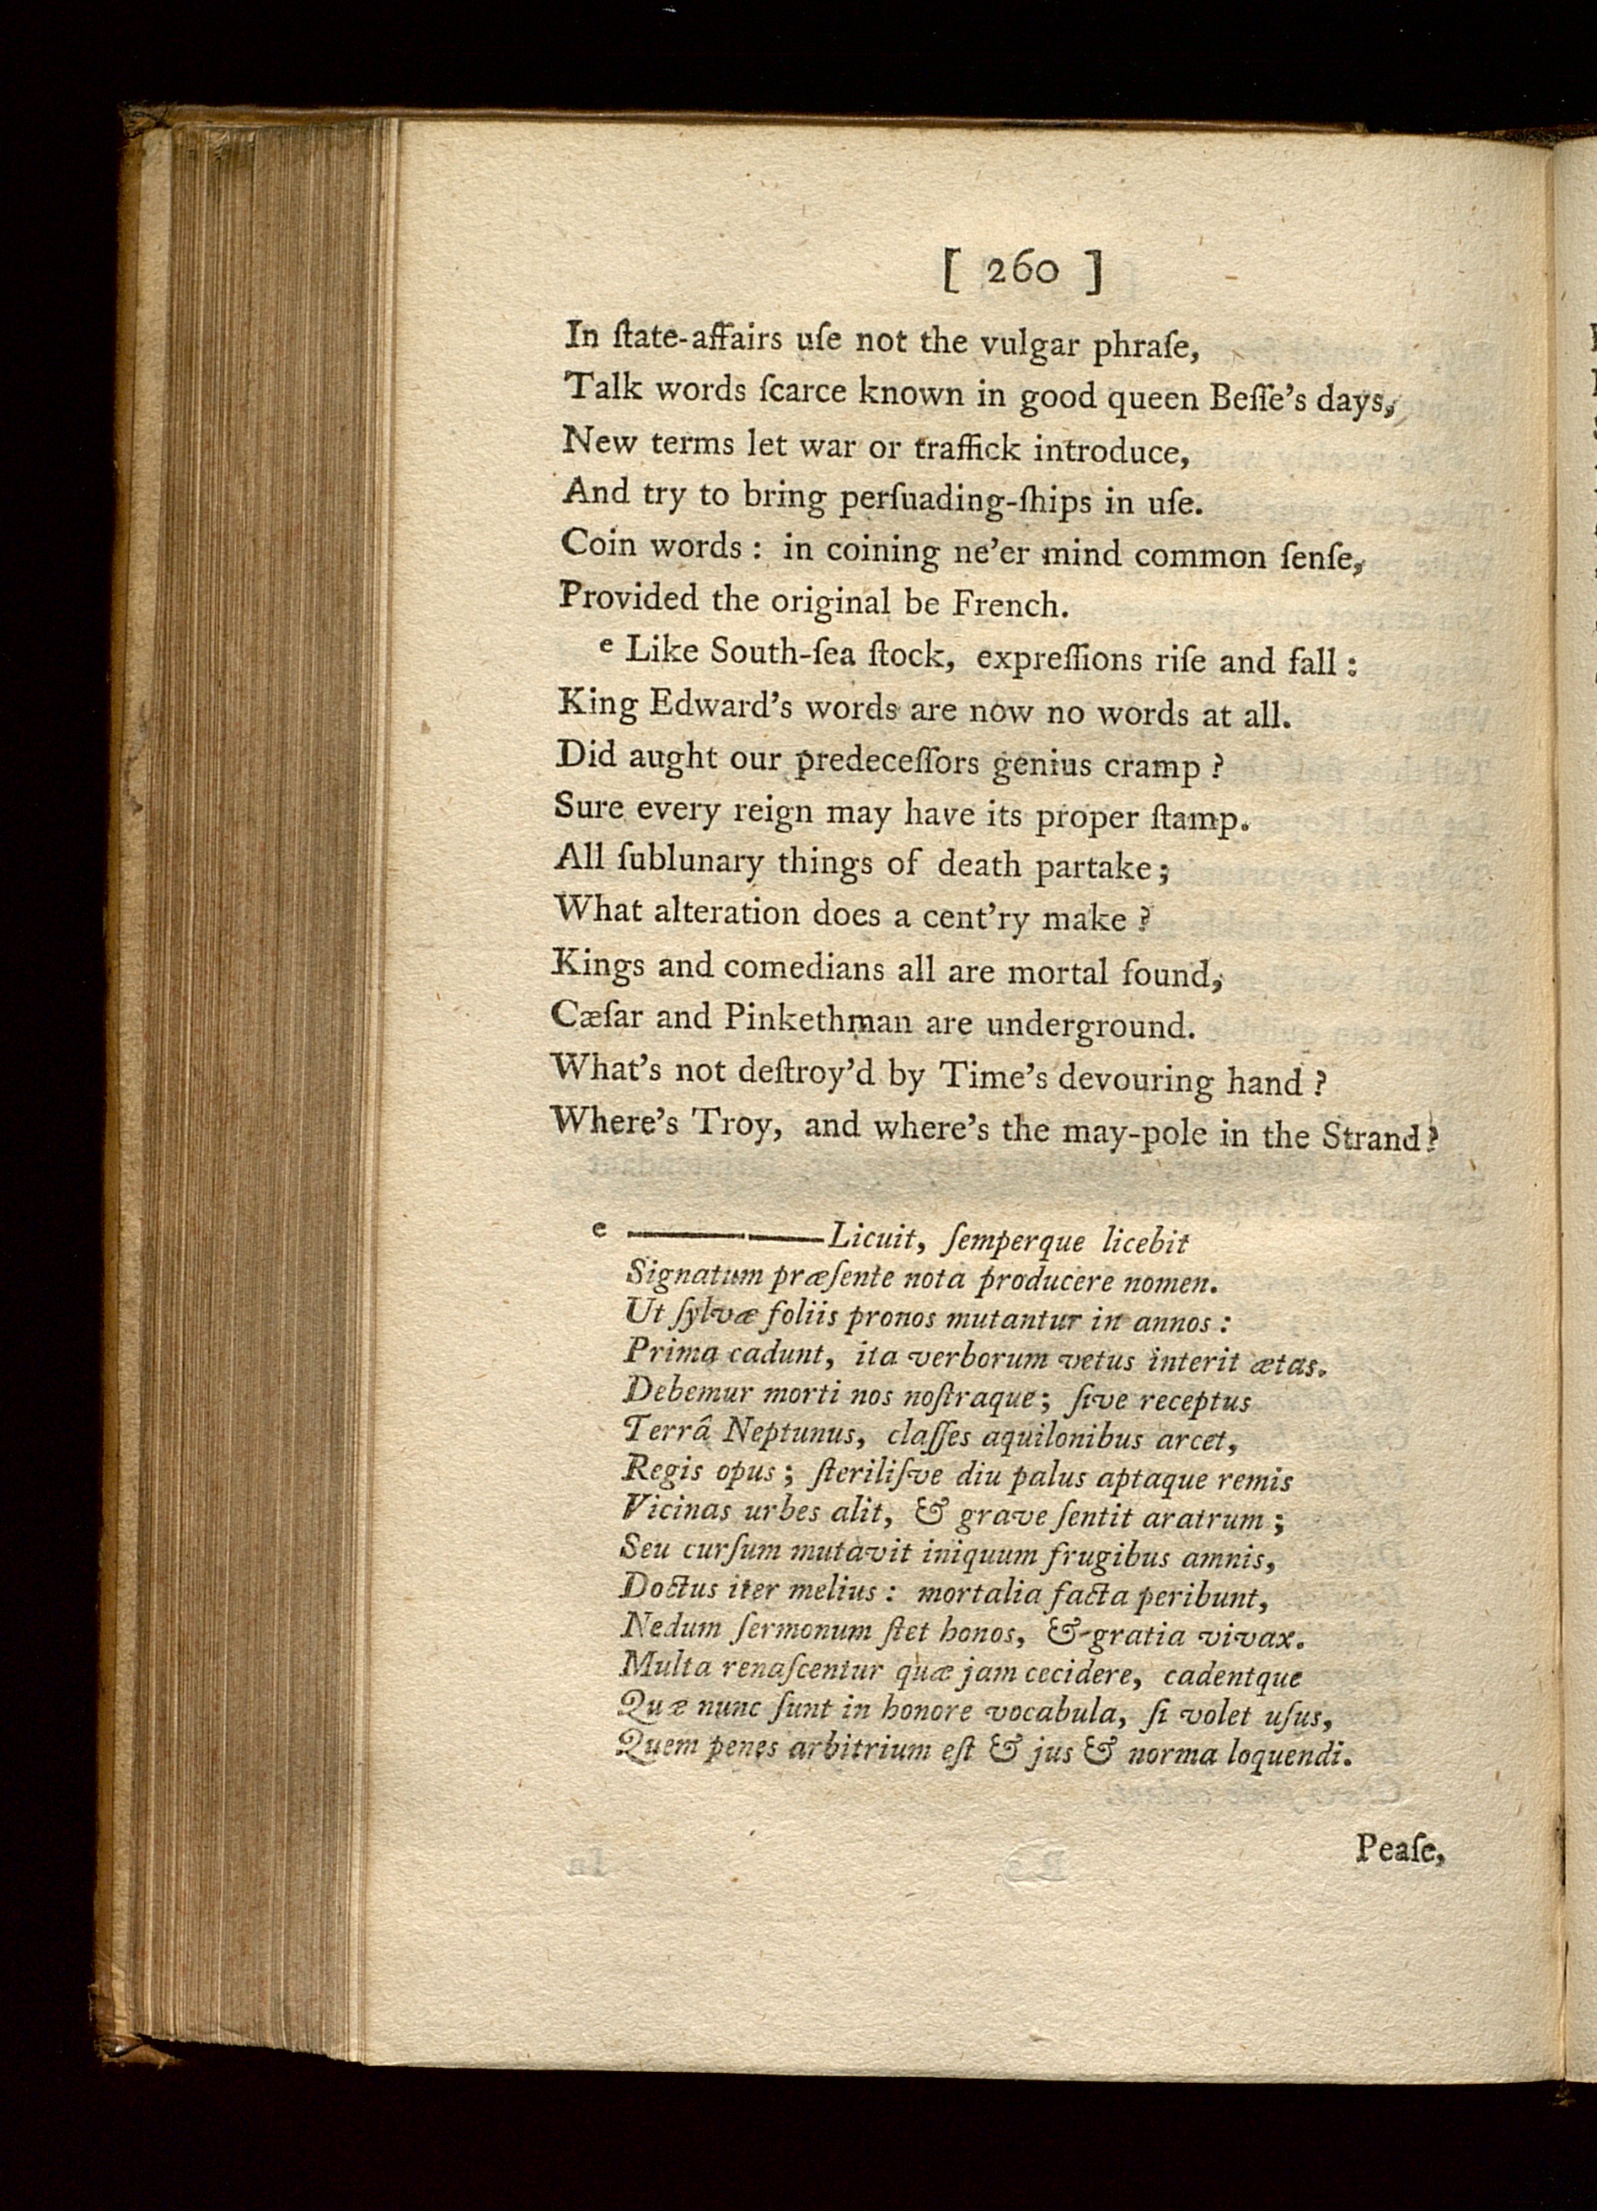 [ 260 ]
In ſtate-affairs uſe not the vulgar phraſe,
Talk words ſcarce known in good queen Beſſe's days,
New terms let war or traffick introduce,
And try to bring perſuading-ſhips in uſe.
Coin words : in coining ne'er mind common ſenſe,
Provided the original be French.
e Like South-ſea ſtock, expreſſions riſe and fall :
King Edward's words are now no words at all.
Did aught our predeceſſors genius cramp ?
Sure every reign may have its proper ſtamp.
All ſublunary things of death partake ;
What alteration does a cent'ry make ?
Kings and comedians all are mortal found,
Cæſar and Pinkethman are underground.
What's not deſtroy'd by Time's devouring hand ?
Where's Troy, and where's the may-pole in the Strand ?
e ————Licuit, ſemperque licebit
Signatum præſente nota producere nomen.
Ut ſylvæ foliis pronos mutantur in annos :
Prima cadunt, ita verborum vetus interit ætas.
Debemur morti nos noſtraque ; ſive receptus
Terrâ Neptunus, claſſes aquilonibus arcet,
Regis opus ; ſteriliſve diu palus aptaque remis
Vicinas urbes alit, & grave ſentit aratrum ;
Seu curſum mutavit iniquum frugibus amnis,
Doctus iter melius : mortalia facta peribunt,
Nedum ſermonum ſtet honos, & gratia vivax.
Multa renaſcentur quæ jam cecidere, cadentque
Quæ nunc ſunt in honore vocabula, ſi volet uſus,
Quem penes arbitrium eſt & jus & norma loquendi.
Peaſe,